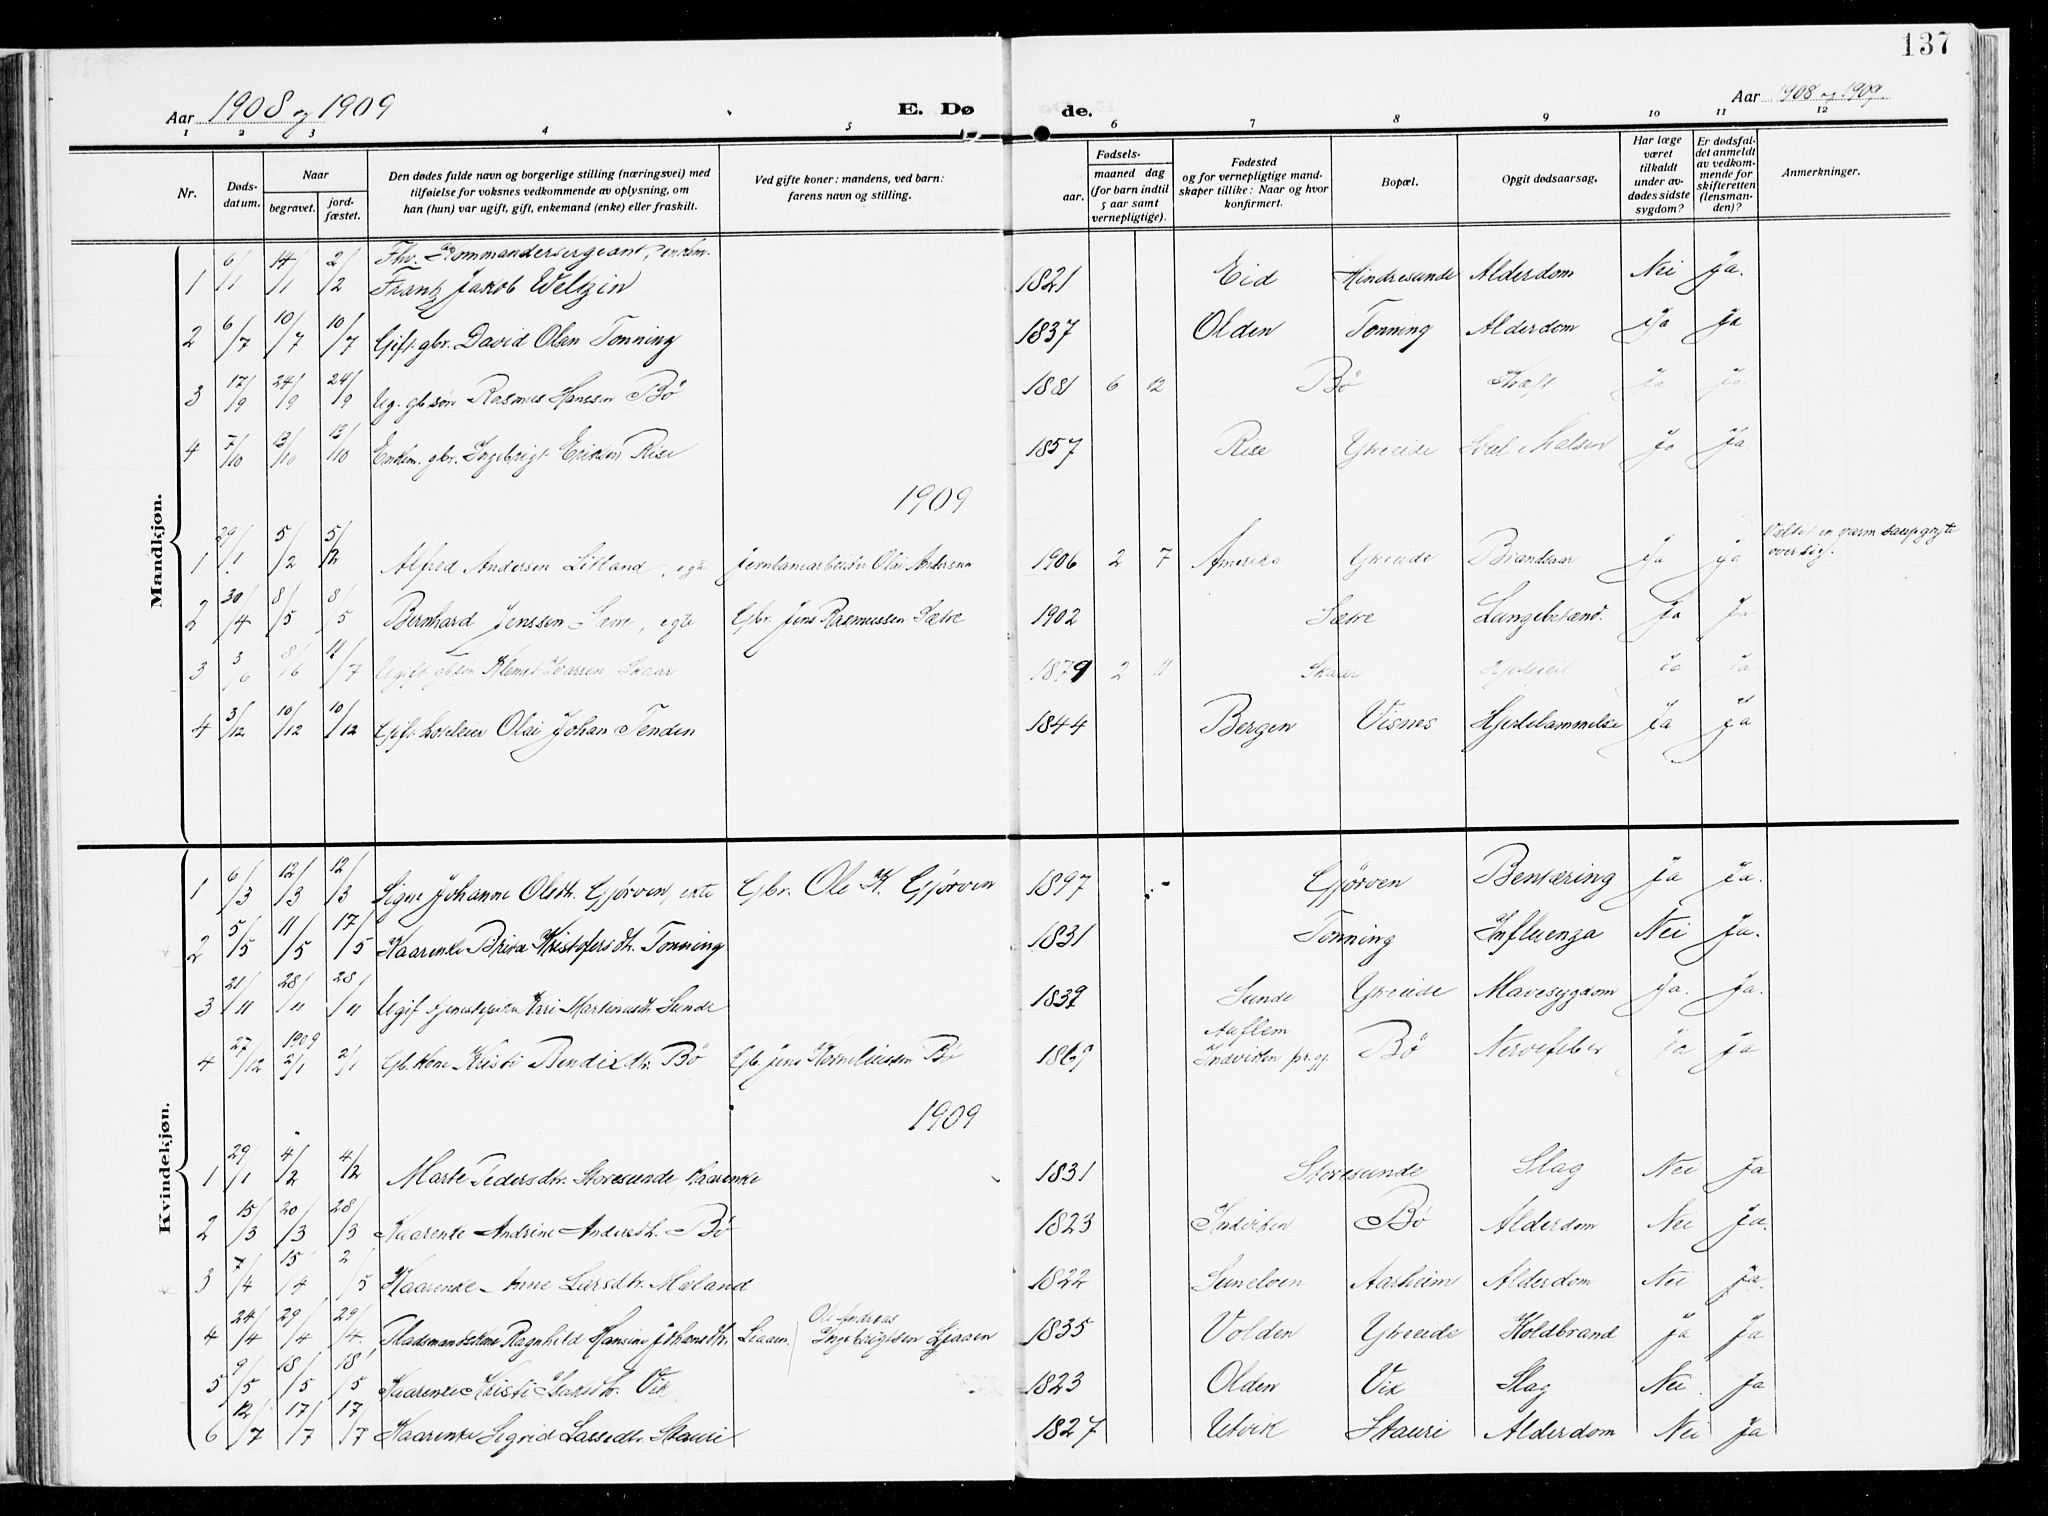 137
Aar 1908 og 1909
E. Dø de.
Aar 1908 og 1909
1 2 3 4 5 6 7 8 9 10 11 12
Nr.
Døds-
datum.
Naar
begravet.
jord-
fæstet.
Den dødes fulde navn og borgerlige stilling (næringsvei) med
tilføielse for voksnes vedkommende av oplysning, om
han (hun) var ugift, gift, enkemand (enke) eller fraskilt.
Ved gifte koner: mandens, ved barn:
farens navn og stilling.
Fødsels-
aar.
maaned dag
(for barn indtil
5 aar samt
vernepligtige).
Fødested
og for vernepligtige mand-
skaper tillike: Naar og hvor
konfirmert.
Bopæl.
Opgit dødsaarsag.
Har læge
været
tilkaldt
under av-
dødes sidste
sygdom?
Er dødsfal-
det anmeldt
av vedkom-
mende for
skifteretten
(lensman-
den)?
Anmerkninger.
Mandkjøn.
Fhv. Kommandersergeant, enkem.
1 6/1 14/1 2/2 Frantz Jakob Weltzin 1821 Eid Hindresunde Alderdom Nei Ja.
2 6/7 10/7 10/7 Gift gbr. David Olsen Tonning 1837 Olden Tonning Alderdom Ja Ja
3 17/9 24/9 24/9 Ug. gbsøn Rasmus Hanssen Bö 1881 6 12 Bö Kræft Ja Ja
4 7/10 13/10 13/10 Enkem. gbr. Ingebrigt Eriksen Rise 1857 Rise Ytreeide Ja Ja
1909
1 29/1 5/2 5/2 Alfred Andersen Litland, egte Jernbanearbeider Olai Andersen 1906 2 7 Amerika Ytreeide Brandsaar Ja Ja Væltet en varm saupgryte
over sig.
2 30/4 8/5 8/5 Bernhard Jenssen Sætre, egte Gbr. Jens Rasmussen Sætre 1902 Sætre Lungebetænd. Ja Ja
3 3/6 8/6 11/7 Ugift gbsøn Klemet Ivarsen Skaar 1879 2 11 Skaar Hjertefeil Ja Ja
4 3/12 10/12 10/12 Gift hoteleier Olai Johan Tenden 1844 Bergen Visnes Hjertelammelse Ja Ja
Kvindekjøn.
1 6/3 12/3 12/3 Signe Johanne Olsdtr. Gjörven, ekte Gbr. Ole K. Gjörven 1897 Gjörven Bentæring Ja Ja.
2 5/5 11/5 17/5 Kaarenke Brita Kristofersdtr. Tonning 1831 Tonning Influenza Nei Ja.
3 21/11 28/11 28/11 Ugif tjenestepike Kari Martinusdtr Sunde 1839 Sunde Ytreeide Mavesygdom Ja. Ja.
4 27/12 1909 2/1 2/1 Gb. kone Kristi Bendixdtr. Bö Gb. Jens Korneliussen Bö 1869 Auflem
Indviken pr.gj. Bö Nervefeber Ja Ja
1909
1 29/1 4/2 4/2 Marte Pedersdtr. Storesunde, Kaarenke 1831 Storesunde Slag Nei Ja
2 15/3 20/3 28/3 Kaarenke Andrine Andersdtr. Bö 1823 Indviken Bö Alderdom Nei Ja.
3 7/4 15/4 2/5 Kaarenke Anne Larsdtr. Mæland 1822 Sunelven Aarheim Alderdom Nei Ja.
4 24/4 29/4 29/4 Pladsmandskone Ragnhild Hansine Johansdtr. Liaaen Ole Andreas
Ingebrigtsen Liaaen 1835 Volden Ytreeide Koldbrand Ja Ja
5 9/5 18/5 18/5 Kaarenke Kristi Isaksdtr. Vik 1823 Olden Vik Slag Nei Ja
6 12/7 17/7 17/7 Kaarenke Sigrid Lassedtr. Skauri 1827 Utvik Skauri Alderdom Nei Ja